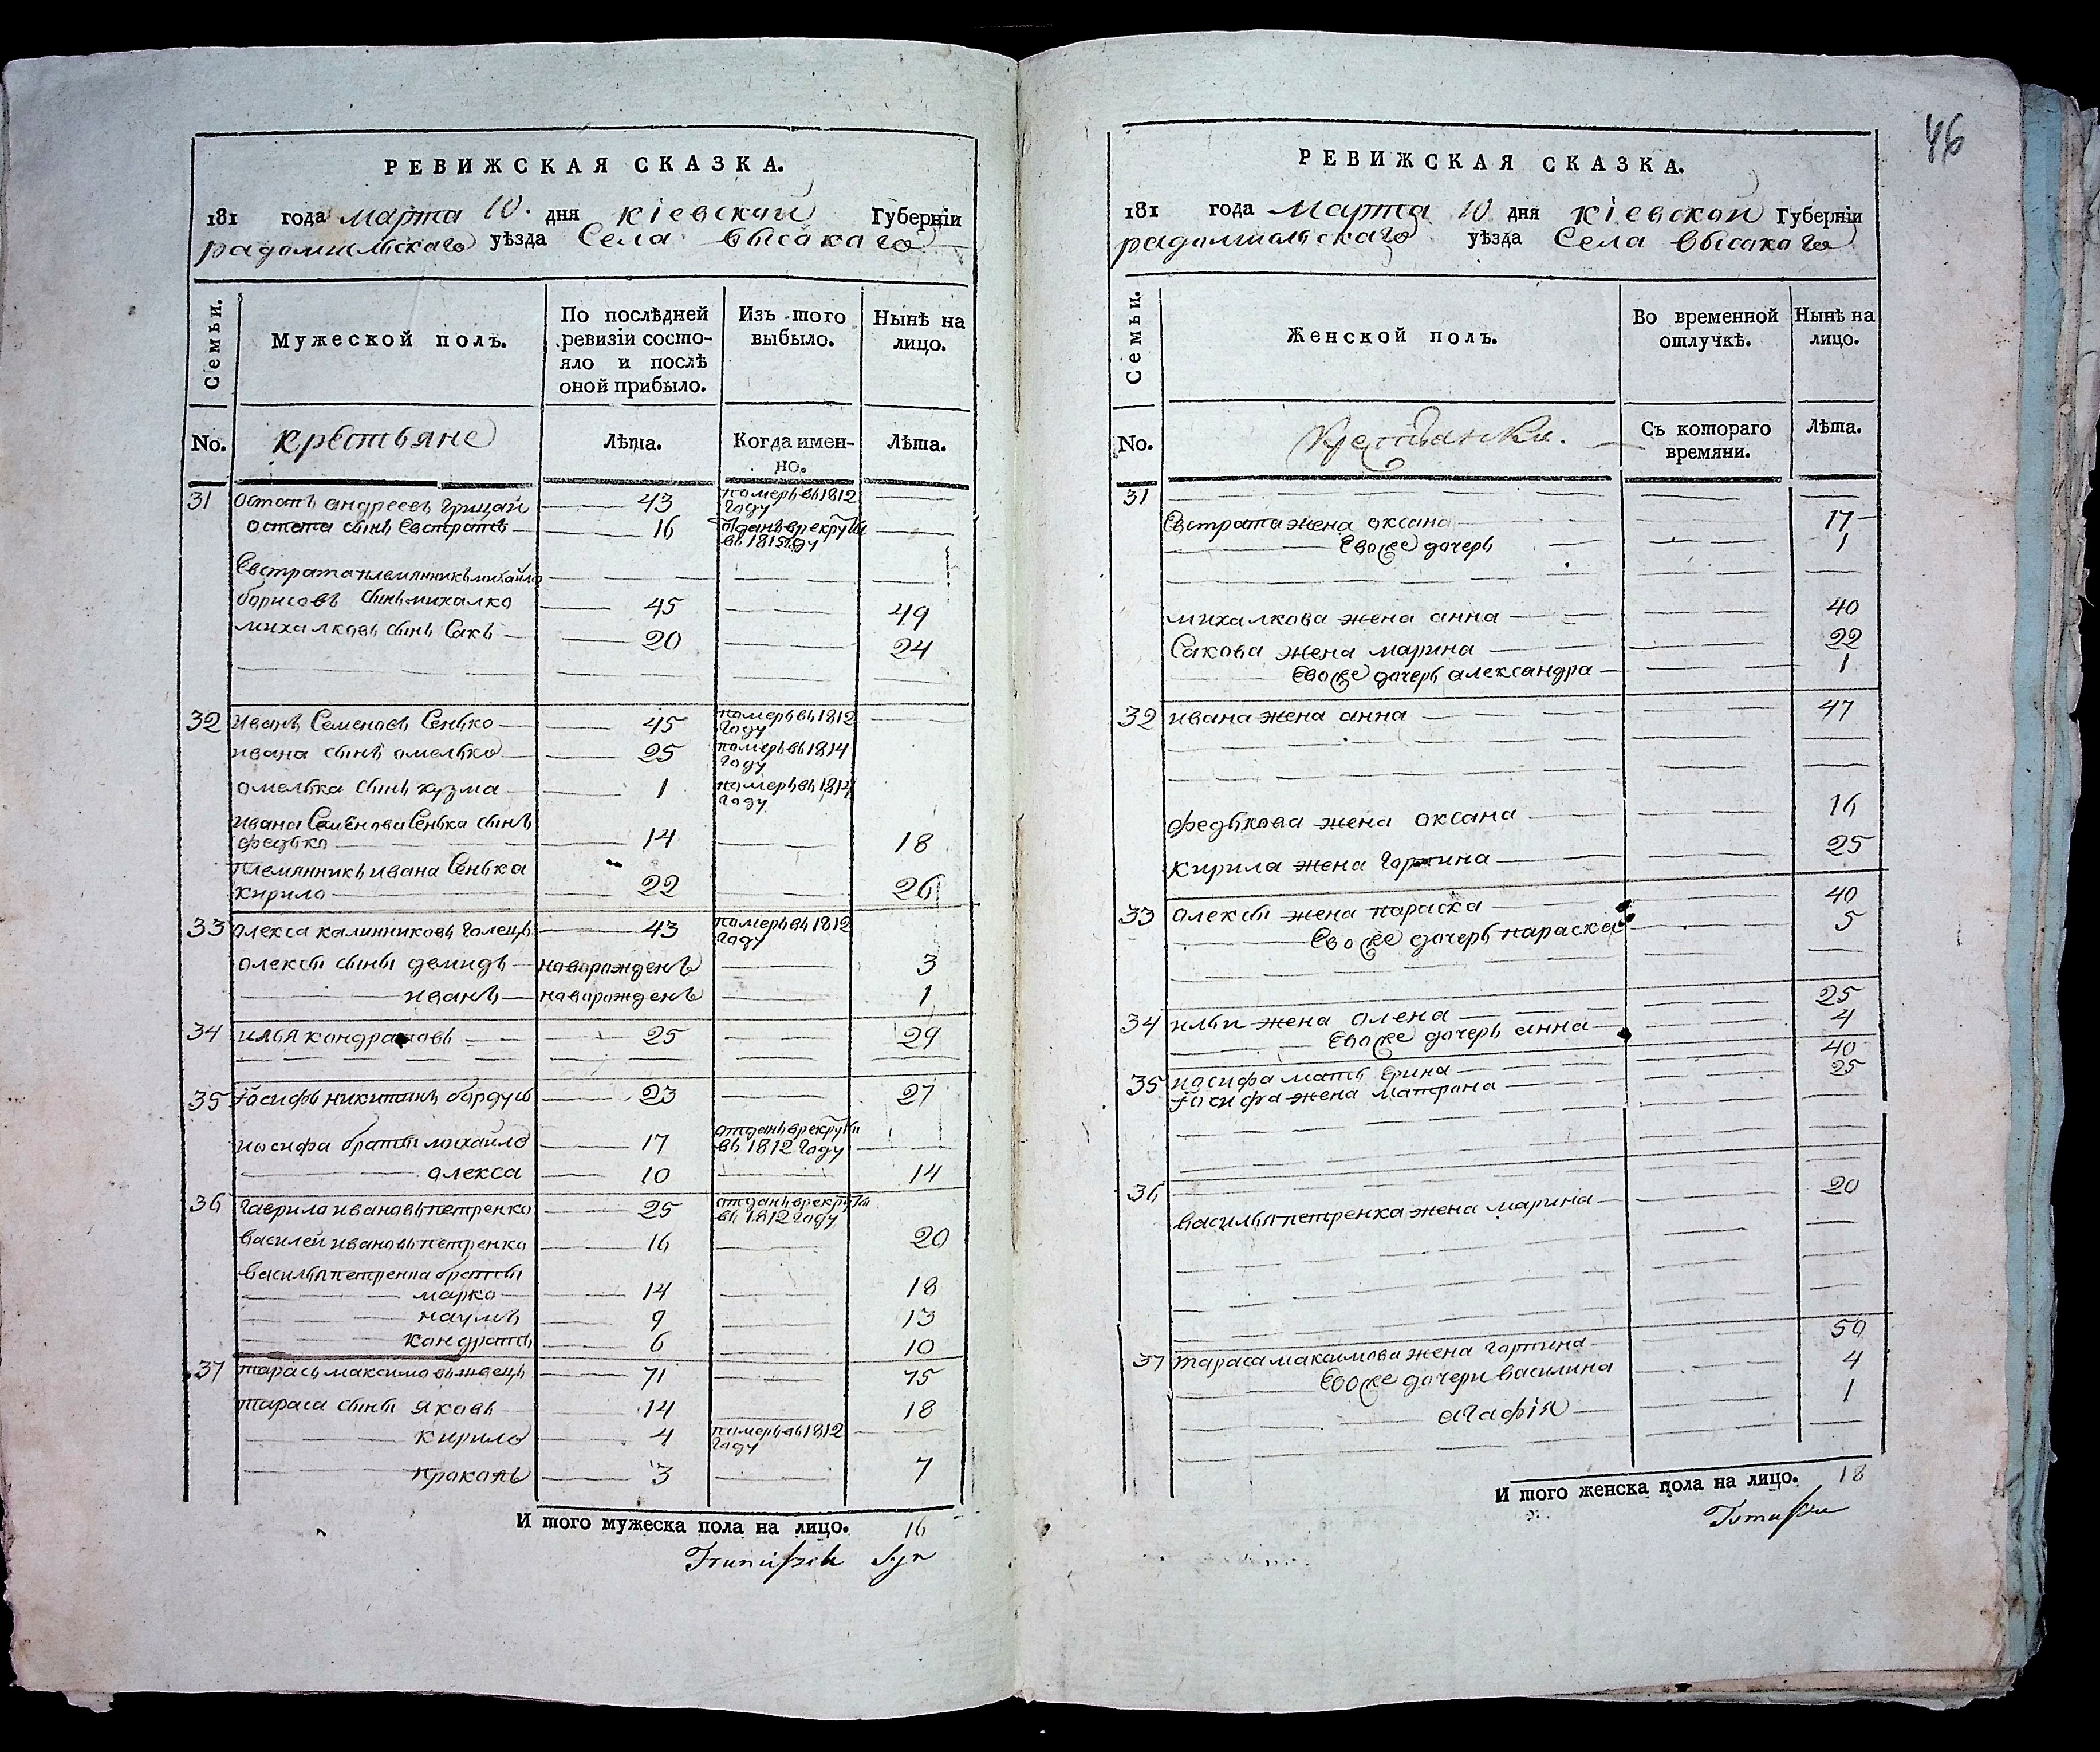 46
РЕВИЖСКАЯ СКАЗКА.
181 года марта 10. дня кіевской Губерніи
радомышльскаго уѣзда Села высокаго
Семьи.
Мужеской полъ.
По послѣдней ревизіи состо-
яло и послѣ
оной прибыло.
Изъ того
выбыло.
Нынѣ на
лицо.
No. крестьяне Лѣта. Когда имен-
но. Лѣта.
31 Остапъ андреевъ грицай 43 померъ въ 1812
году
остапа сынъ Евстратъ 16 отданъ врекруты
въ 1815 году
Евстрата племянникъ михайло
борисовъ сынъ михалко 45 49
михалковъ сынъ Сакъ 20 24
32 иванъ Семеновъ Сенько 45 померъ въ 1812
году
ивана сынъ омелько 25 померъ въ 1814
году
омелька сынъ кузма 1 померъ въ 1814
году
ивана Семенова Сенька сынъ
федько 14 18
племянникъ ивана Сенька
кирило 22 26
33 олекса калинниковъ голецъ 43 померъ въ 1812
году
олексы сыны демидъ новорожденъ 3
иванъ новорожденъ 1
34 илья кондратовъ 25 29
35 Іосифъ никитинъ бардушъ 23 27
иосифа браты михайло 17 отданъ врекруты
въ 1812 году
олекса 10 14
36 гаврило ивановъ петренко 25 отданъ врекруты
въ 1812 году
василей ивановъ петренко 16 20
василья петренка браты
марко 14 18
наумъ 9 13
кондратъ 6 10
37 тарасъ максимовъ 71 75
тараса сыны яковъ 14 18
кирило 4 померъ въ 1812
году
прокопъ 3 7
И того мужеска пола на лицо. 16
РЕВИЖСКАЯ СКАЗКА.
181 года марта 10 дня кіевской Губерніи
радомышльскаго уѣзда Села высокаго
Семьи.
Женской полъ.
Во временной
отлучкѣ.
Нынѣ на
лицо.
No. Крестьянки. Съ котораго
времяни. Лѣта.
31
Евстрата жена оксана 17
Евоже дочерь 1
михалкова жена анна 40
Сакова жена марина 22
Евоже дочерь александра 1
32 ивана жена анна 47
федькова жена оксана 16
кирила жена горпина 25
33 олексы жена параска 40
Евоже дочерь параска 5
34 ильи жена олена 25
Евоже дочерь анна 4
35 иосифа мать Ерина 40
Іосифа жена матрона 25
36
василья петренка жена марина 20
37 тараса максимова жена горпина 50
Евоже дочери василина 4
агафія 1
И того женска пола на лицо. 18